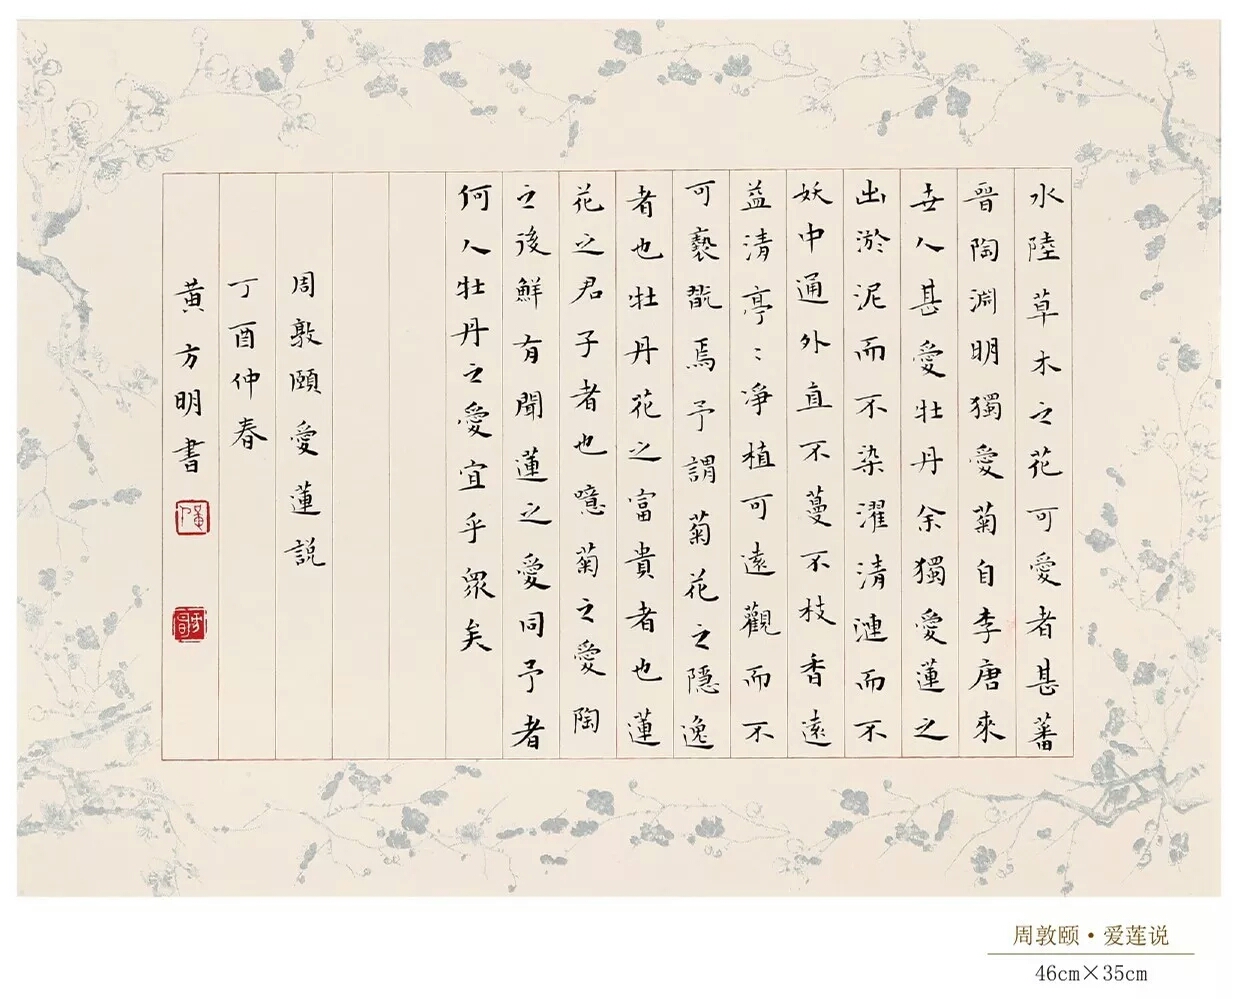 水陸草木之花可愛者甚蕃
晋陶淵明獨愛菊自李唐來
世人甚愛牡丹余獨愛蓮之
出淤泥而不染濯清漣而不
妖中通外直不蔓不枝香遠
益清亭：淨植可遠觀而不
可褻翫焉予謂菊花之隱逸
者也牡丹花之富貴者也蓮
花之君子者也噫菊之愛陶
之後鮮有聞蓮之愛同予者
何人牡丹之愛宜乎眾矣
周敦頤愛蓮説
丁酉仲春
黄方明書
周敦颐·爱莲说
46cm×35cm